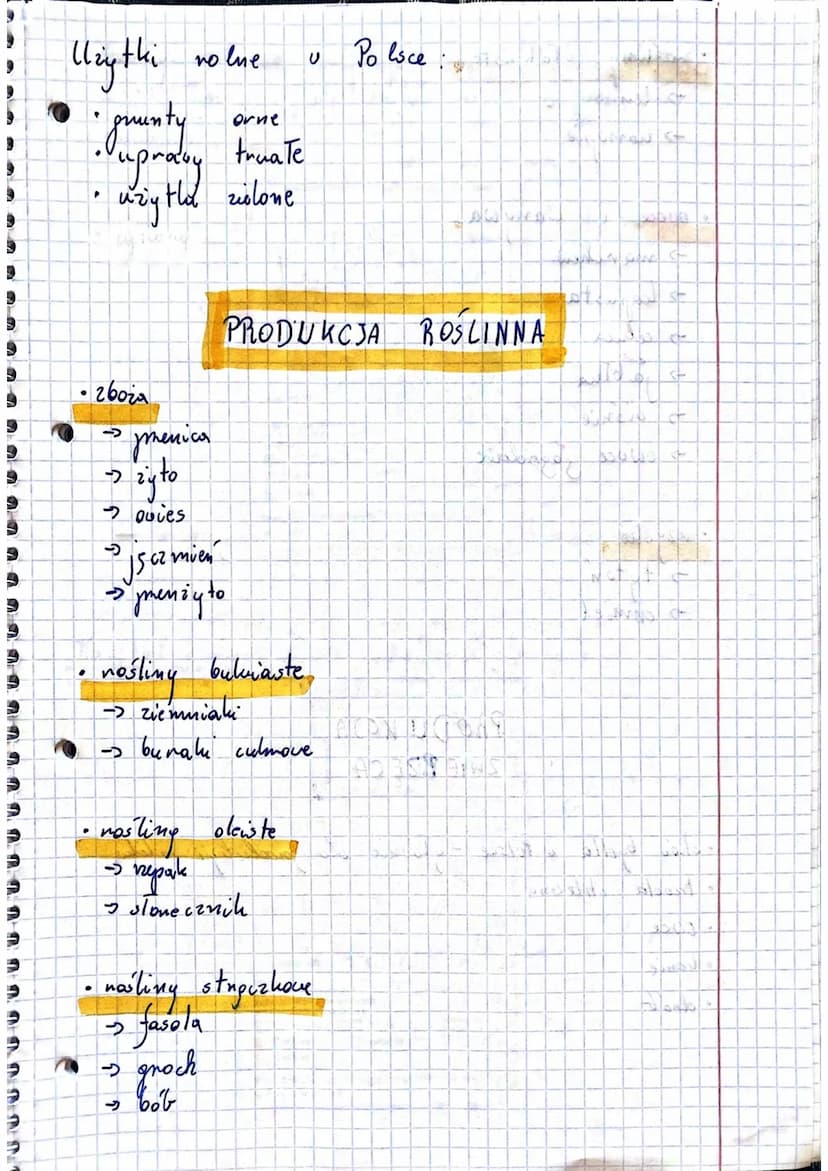 Użytki rolne w Polsce:
• grunty orne
• uprawy trwałe
• użytki zielone
PRODUKCJA ROŚLINNA
• zboża
→ pszenica
→ żyto
→ owies
→ jęczmień
→ pszenżyto
• rośliny bulwiaste
→ ziemniaki
→ buraki cukrowe
• rośliny oleiste
→ rzepak
→ słonecznik
• rośliny strączkowe
→ fasola
→ groch
→ bób